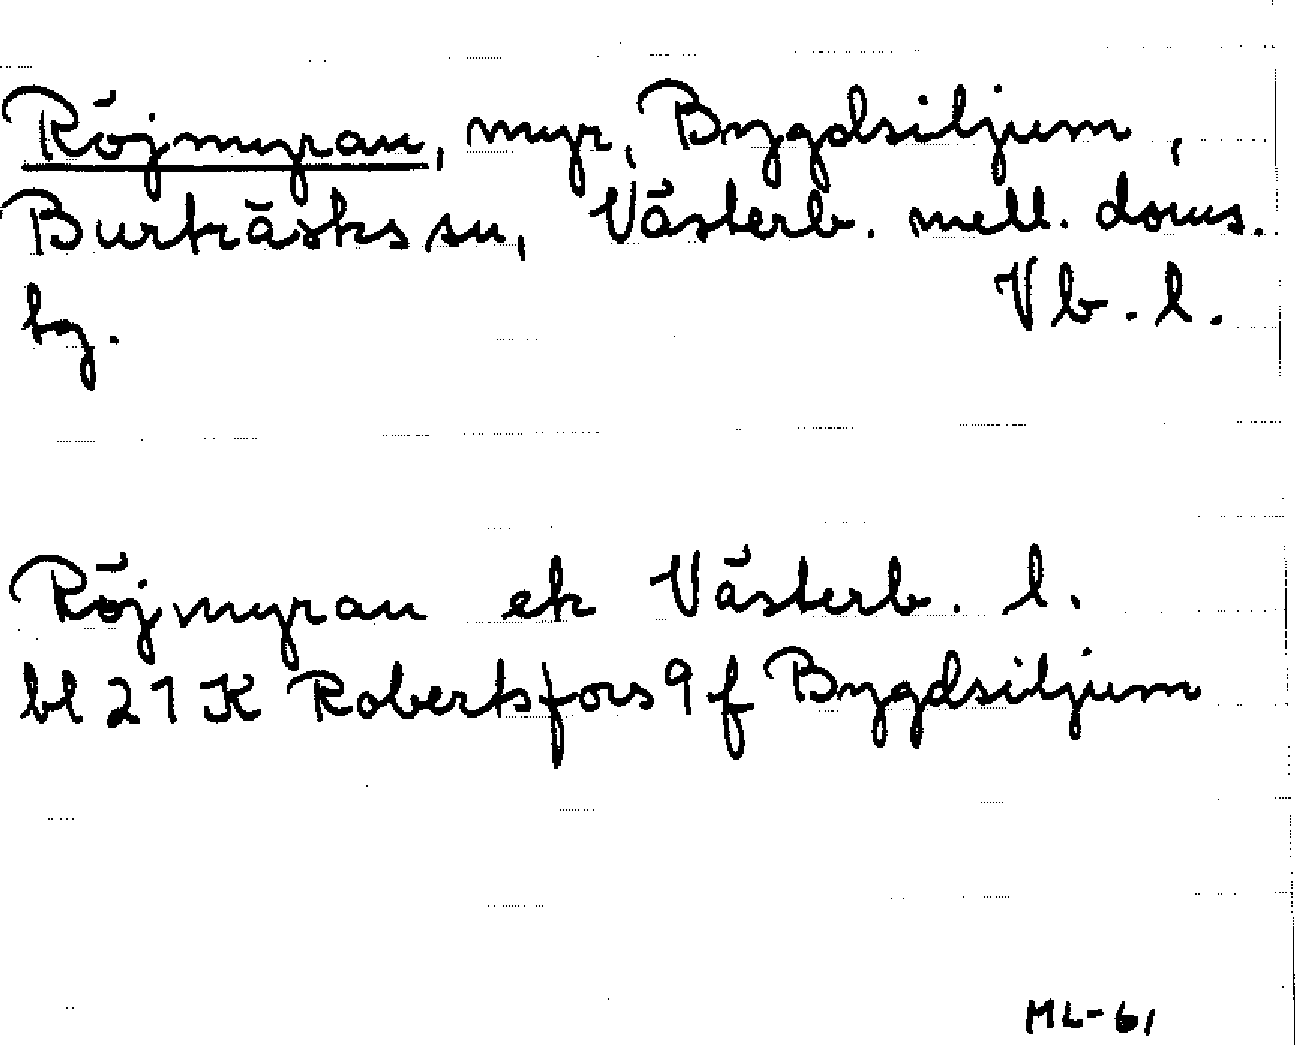 Röjmyran, myr, Bygdsiljum,
Burträsks sn, Västerb. mell. doms.
by. Vb. l.
Röjmyran ek Västerb. l.
bl 21 K Robertsfors 9 f Bygdsiljum
ML-61